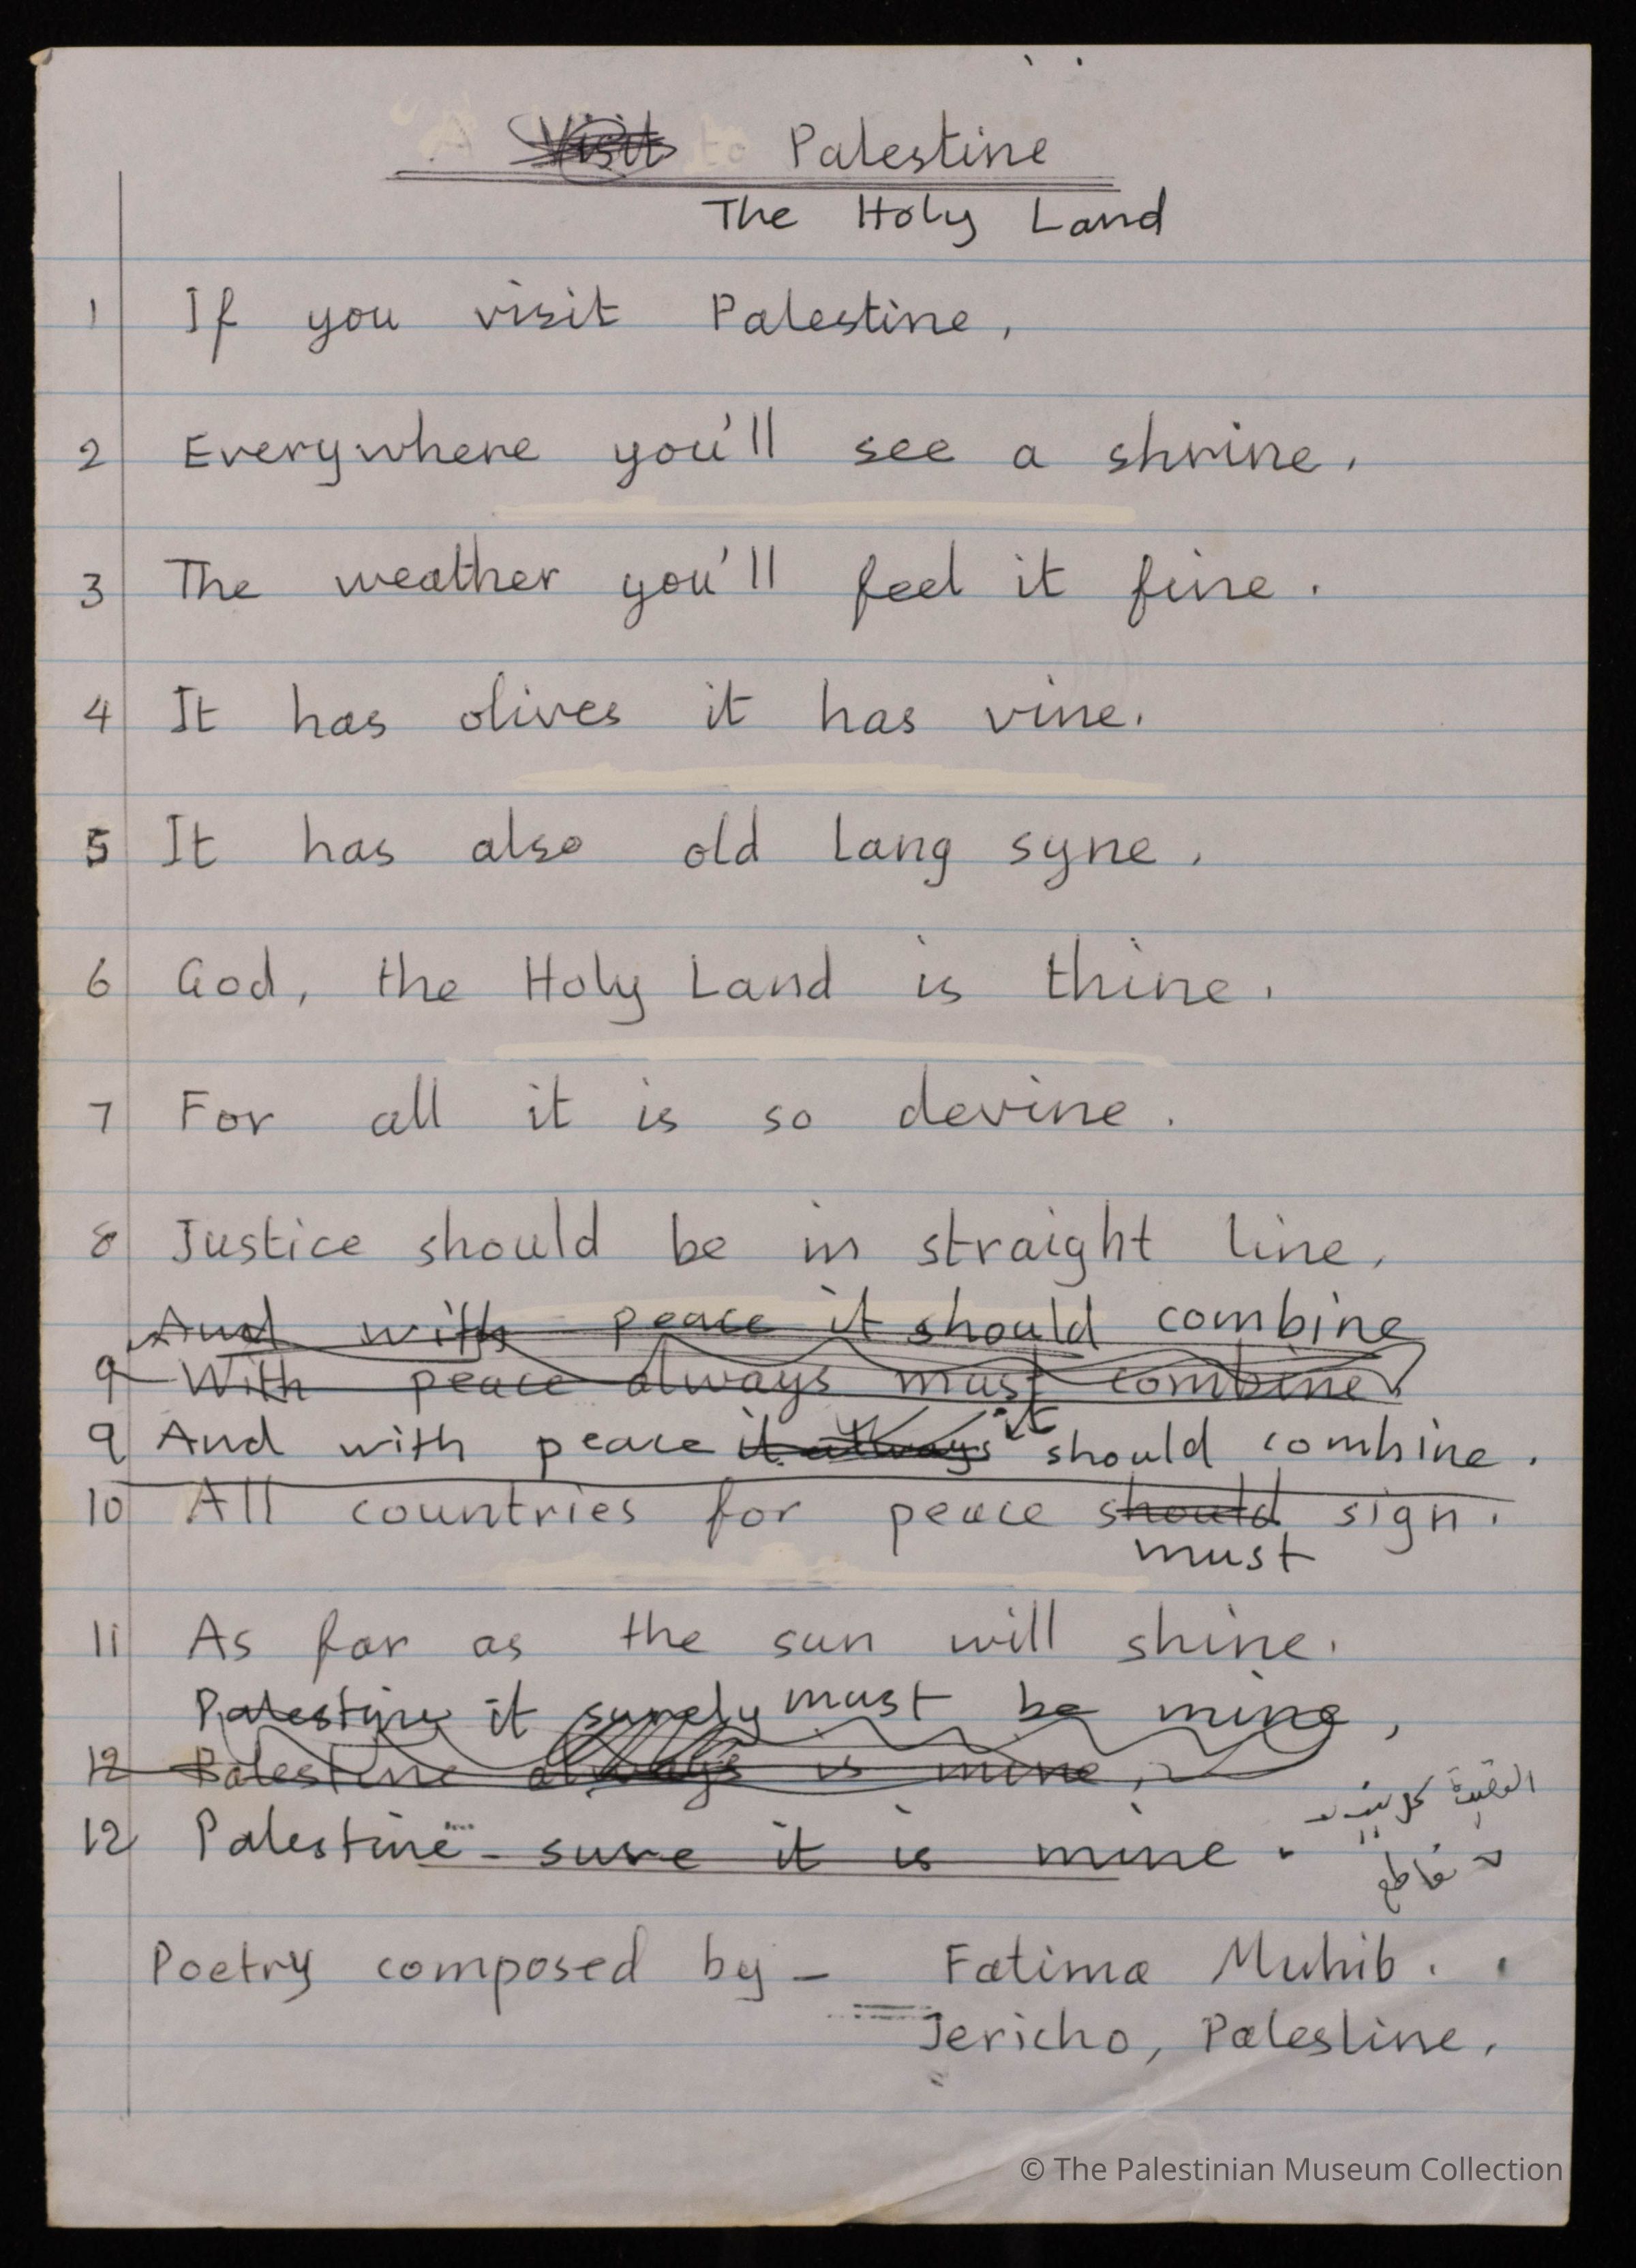 "A Visit to Palestine
The Holy Land
1 If you visit Palestine,
2 Everywhere you'll see a shrine.
3 The weather you'll feel it fine.
4 It has olives it has vine.
5 It has also old lang syne.
6 God, the Holy Land is thine.
7 For all it is so devine.
8 Justice should be in straight line,
And with peace it should combine
9 With peace always must combine
it
9 And with peace it always should combine.
10 All countries for peace should sign.
must
11 As far as the sun will shine.
Palestine it surely must be mine,
12 Palestine always is mine,
القصيدة كل
12 Palestine - sure it is mine.
مقاطع
Poetry composed by - Fatima Muhib.
Jericho, Palestine.
© The Palestinian Museum Collection